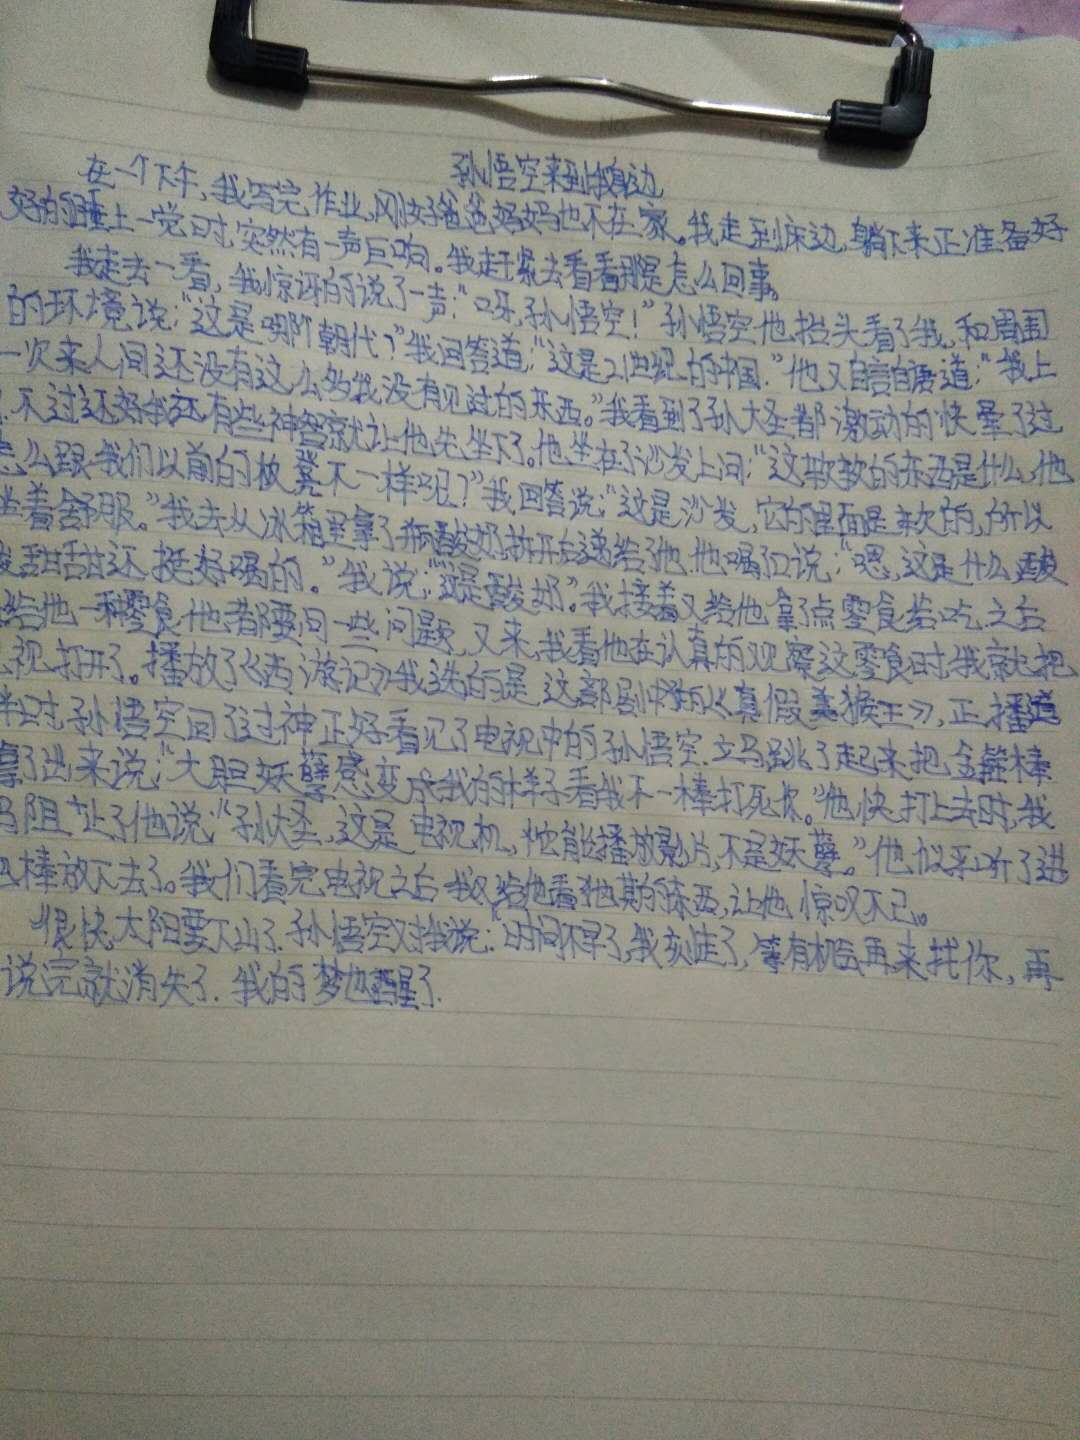 孙悟空来到我身边
在一个下午,我写完作业,刚好爸爸妈妈也不在家。我走到床边,躺下来正准备好
好的睡上一觉时,突然有一声巨响。我赶紧去看看那是怎么回事。
我走去一看,我惊讶的说了一声:“呀,孙悟空!”孙悟空他抬头看了我,和周围
的环境说:“这是哪个朝代?”我回答道:“这是21世纪的中国.”他又自言自语道:“我上
一次来人间还没有这么多我没有见过的东西。”我看到了孙大圣都激动的快晕了过
,不过还好我还有些神智就让他先坐下了。他坐在了沙发上问:“这软软的东西是什么,他
怎么跟我们以前的板凳不一样呢?”我回答说:“这是沙发,它的里面是软的,所以
坐着舒服。”我去从冰箱里拿了瓶酸奶,拆开后递给了他,他喝口说:“嗯,这是什么,酸
酸甜甜还挺好喝的。”我说:“这是酸奶”。我接着又给他拿了点零食给吃,之后
给他一种零食,他都要问一些问题,又来,我看他在认真的观察这零食时,我就把
视打开了。播放了《西游记》我选的是这部剧中的《真假美猴王》,正播道
半时,孙悟空回了过神正好看见了电视中的孙悟空.立马跳了起来把金箍棒
拿了出来说:“大胆妖孽,感变成我的样子看我不一棒打死你。”他快打上去时,我
马阻止了他说:“孙大圣,这是电视机,他能播放影片,不是妖孽。”他似乎听了进
棒放下去了。我们看完电视之后我又给他看了其他的东西,让他惊叹不已。
很快,太阳要下山了.孙悟空对我说:“时间不早了,我刻走了,等有机会再来找你,再
说完就消失了.我的梦也醒了.